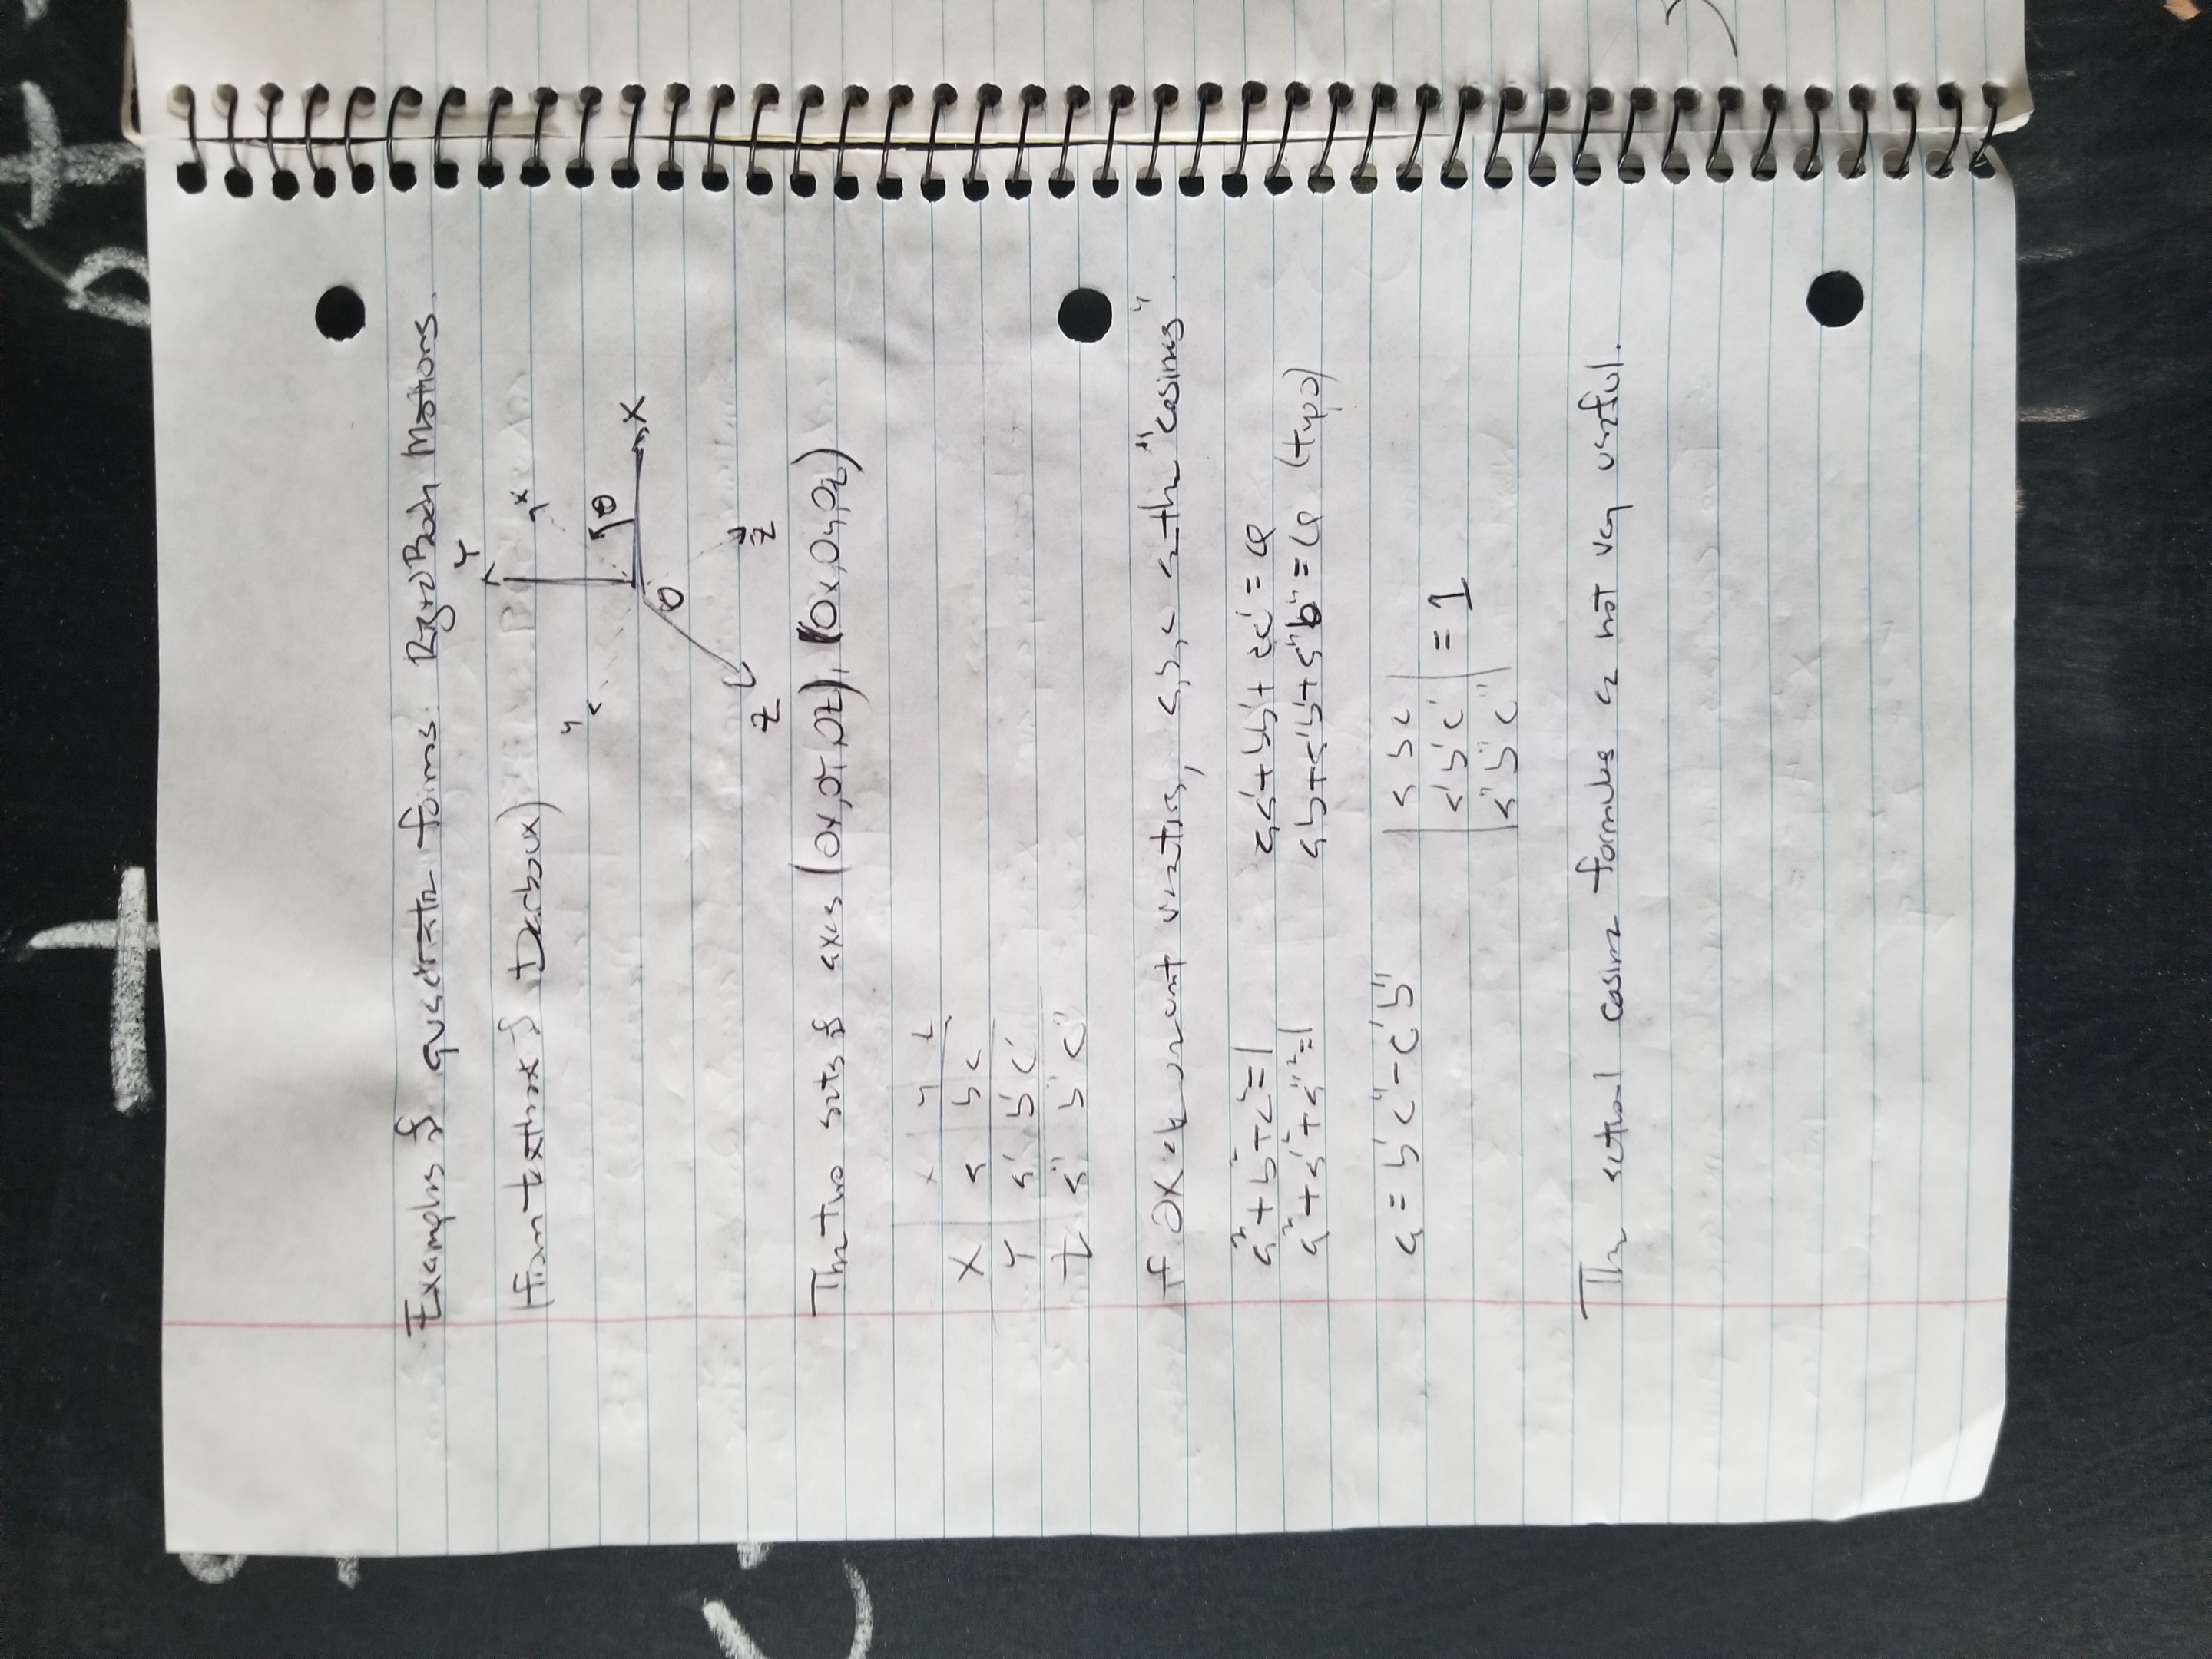 Examples of quadratic forms: Rigid Body Motions.
(from textbook of Darboux)
Y
x
y
θ
X
O
Z
z
The two sets of axes (OX, OY, OZ), (Ox, Oy, Oz)
x y z
X a b c
Y a' b' c'
Z a'' b'' c''
If OX etc are unit vectors, a, b, c are the "cosines".
a² + b² + c² = 1 aa' + bb' + cc' = 0
a² + a'² + a''² = 1 ab + a'b' + a''b'' = 0 (typo)
a = b'c'' - c'b''
a b c
a' b' c' = 1
a'' b'' c''
The actual cosine formulas are not very useful.